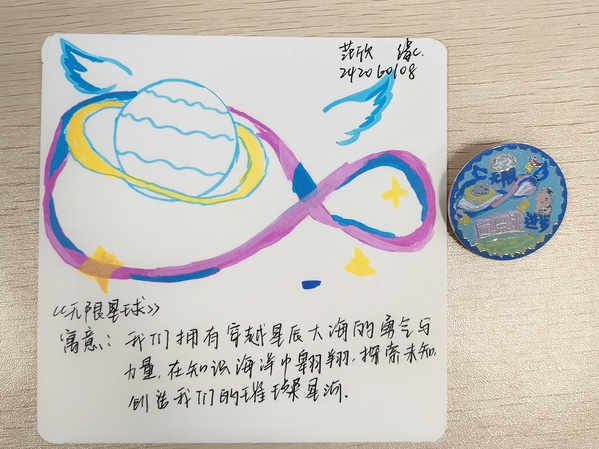 范欣 缘
242060108
《无限星球》
寓意：我们拥有穿越星辰大海的勇气与
力量，在知识海洋中翱翔，探索未知，
创造我们的璀璨星河。
无限
进步